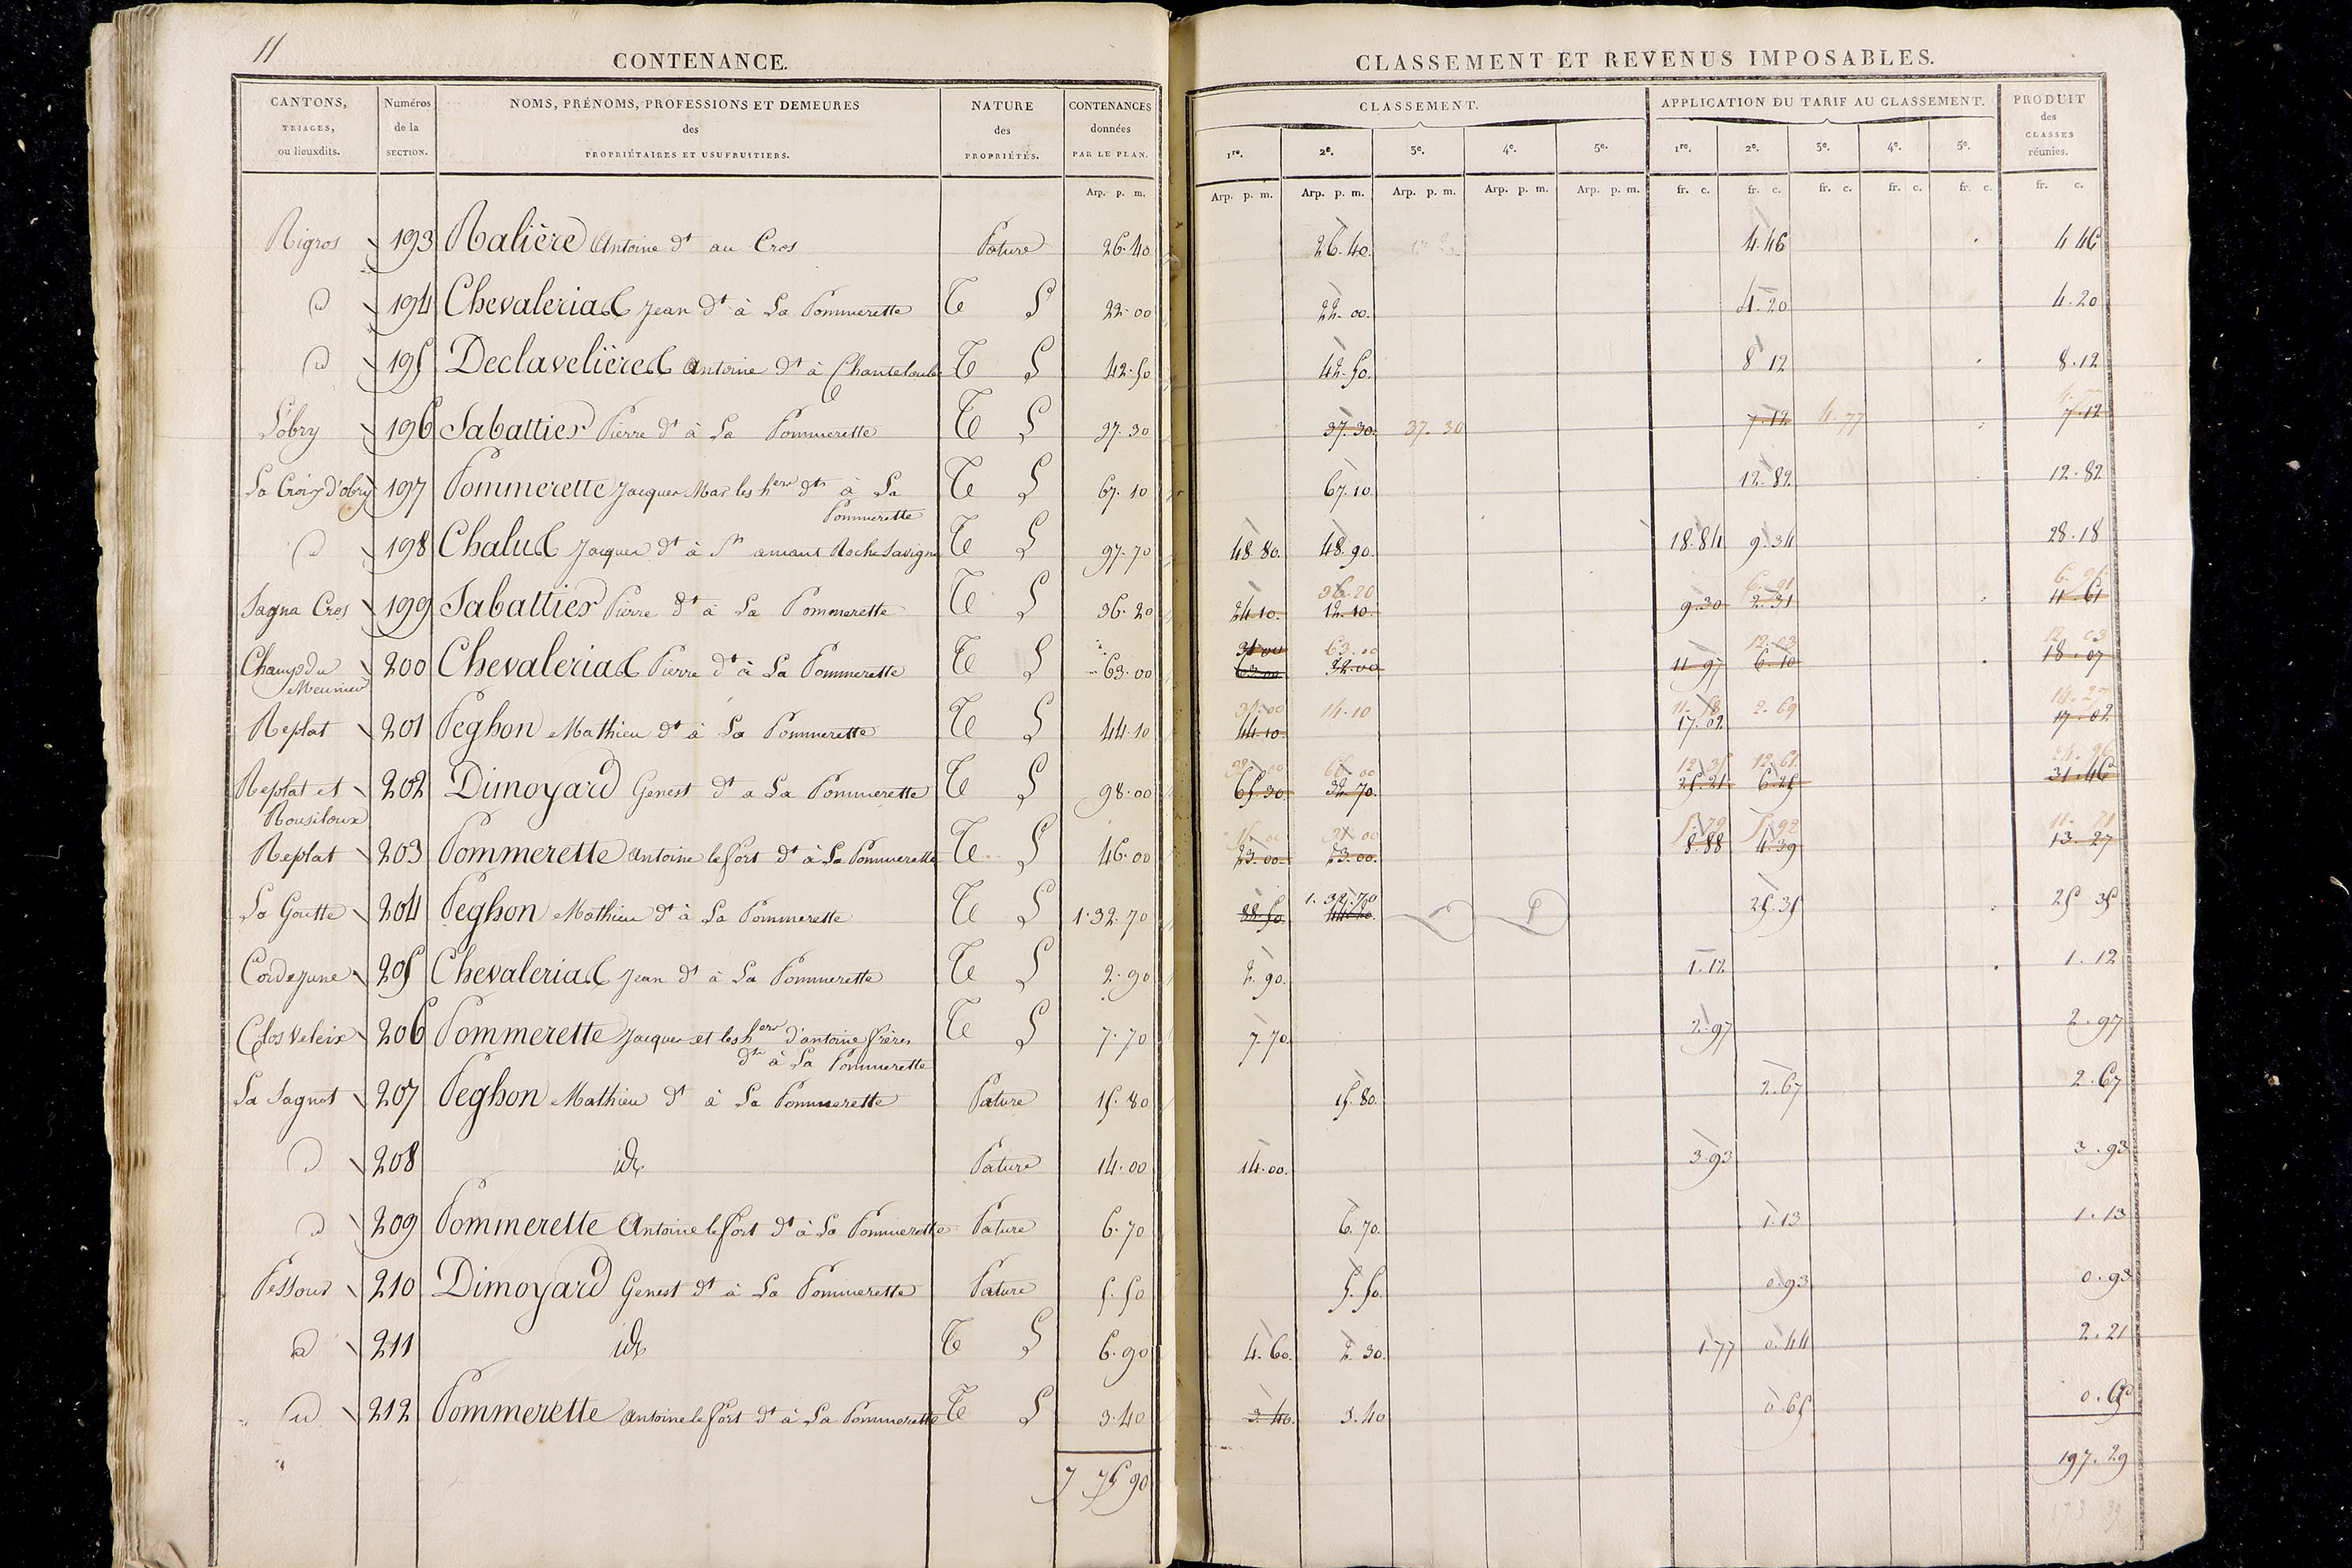 11
CONTENANCE.
CANTONS, TRIAGES, ou lieuxdits. | Numéros de la SECTION. | NOMS, PRÉNOMS, PROFESSIONS ET DEMEURES des PROPRIÉTAIRES ET USUFRUITIERS. | NATURE des PROPRIÉTÉS. | CONTENANCES données PAR LE PLAN.
Arp. p. m.
Rigros 193 Malière Antoine dt au Cros Pature 26.40
d 194 Chevaleriad Jean dt à La Pommerette T L 22.00
d 195 Declavelière Antoine dt à Chanteloube T L 42.50
L'obry 196 Sabattier Pierre dt à La Pommerette T L 37.30
La Croix d'obry 197 Pommerette Jacques Mar les hers dts à La Pommerette T L 67.10
d 198 Chalud Jacques dt à St amant Roche Savigne T L 97.70
Sagna Cros 199 Sabattier Pierre dt à La Pommerette T L 36.20
Champ du Meunier 200 Chevaleriad Pierre dt à La Pommerette T L 63.00
Replat 201 Peghon Mathieu dt à La Pommerette T L 44.10
Replat et Rousiloux 202 Dimoyard Genest dt a La Pommerette T L 98.00
Replat 203 Pommerette Antoine le fort dt à La Pommerette T L 46.00
La Goutte 204 Peghon Mathieu dt à La Pommerette T L 1.32.70
Cordejune 205 Chevaleriad Jean dt à La Pommerette T L 2.90
Clos Veleix 206 Pommerette Jacques et les hers d'antoine frères dts à La Pommerette T L 7.70
La Sagnot 207 Peghon Mathieu dt à La Pommerette Pature 15.80
d 208 id Pature 14.00
d 209 Pommerette Antoine le fort dt à La Pommerette Pature 6.70
Pessour 210 Dimoyard Genest dt à La Pommerette Pature 5.50
d 211 id T L 6.90
d 212 Pommerette Antoine le fort dt à La Pommerette T L 3.40
7 75 90
CLASSEMENT ET REVENUS IMPOSABLES.
CLASSEMENT. | APPLICATION DU TARIF AU CLASSEMENT. | PRODUIT des CLASSES réunies.
1re. 2e. 3e. 4e. 5e. 1re. 2e. 3e. 4e. 5e.
Arp. p. m. Arp. p. m. Arp. p. m. Arp. p. m. Arp. p. m. fr. c. fr. c. fr. c. fr. c. fr. c. fr. c.
26.40. 4.46 4.46
22.00. 4.20 4.20
42.50. 8 12 8.12
37.30. 37.30 7.12 4.77 4.77 7.12
67.10 12.82 12.82
48.80. 48.90. 18.84 9.34 28.18
36.20 6.91 6.91
24.10. 12.10. 9.30 2.31 11.61
31.00 63.00 12.03 12.03
63.00 32.00 11.97 6.10 18.07
30.00 14.10 11.58 2.69 14.27
44.10. 17.02 17.02
32.00 66.00 12.35 12.61 24.96
65.30 32.70. 25.21 6.25 31.46
15.00 31.00 5.79 5.92 11.71
23.00 23.00. 8.88 4.39 13.27
88.50 1.32.70 25.35 25 35
2.90. 1.12 1.12
7.70 2.97 2.97
15.80. 2.67 2.67
14.00. 3.93 3.93
6.70. 1.13 1.13
5.50. 0.93 0.93
4.60. 2.30. 1.77 0.44 2.21
3.40. 3.40 0.65 0.65
197.29
173 39